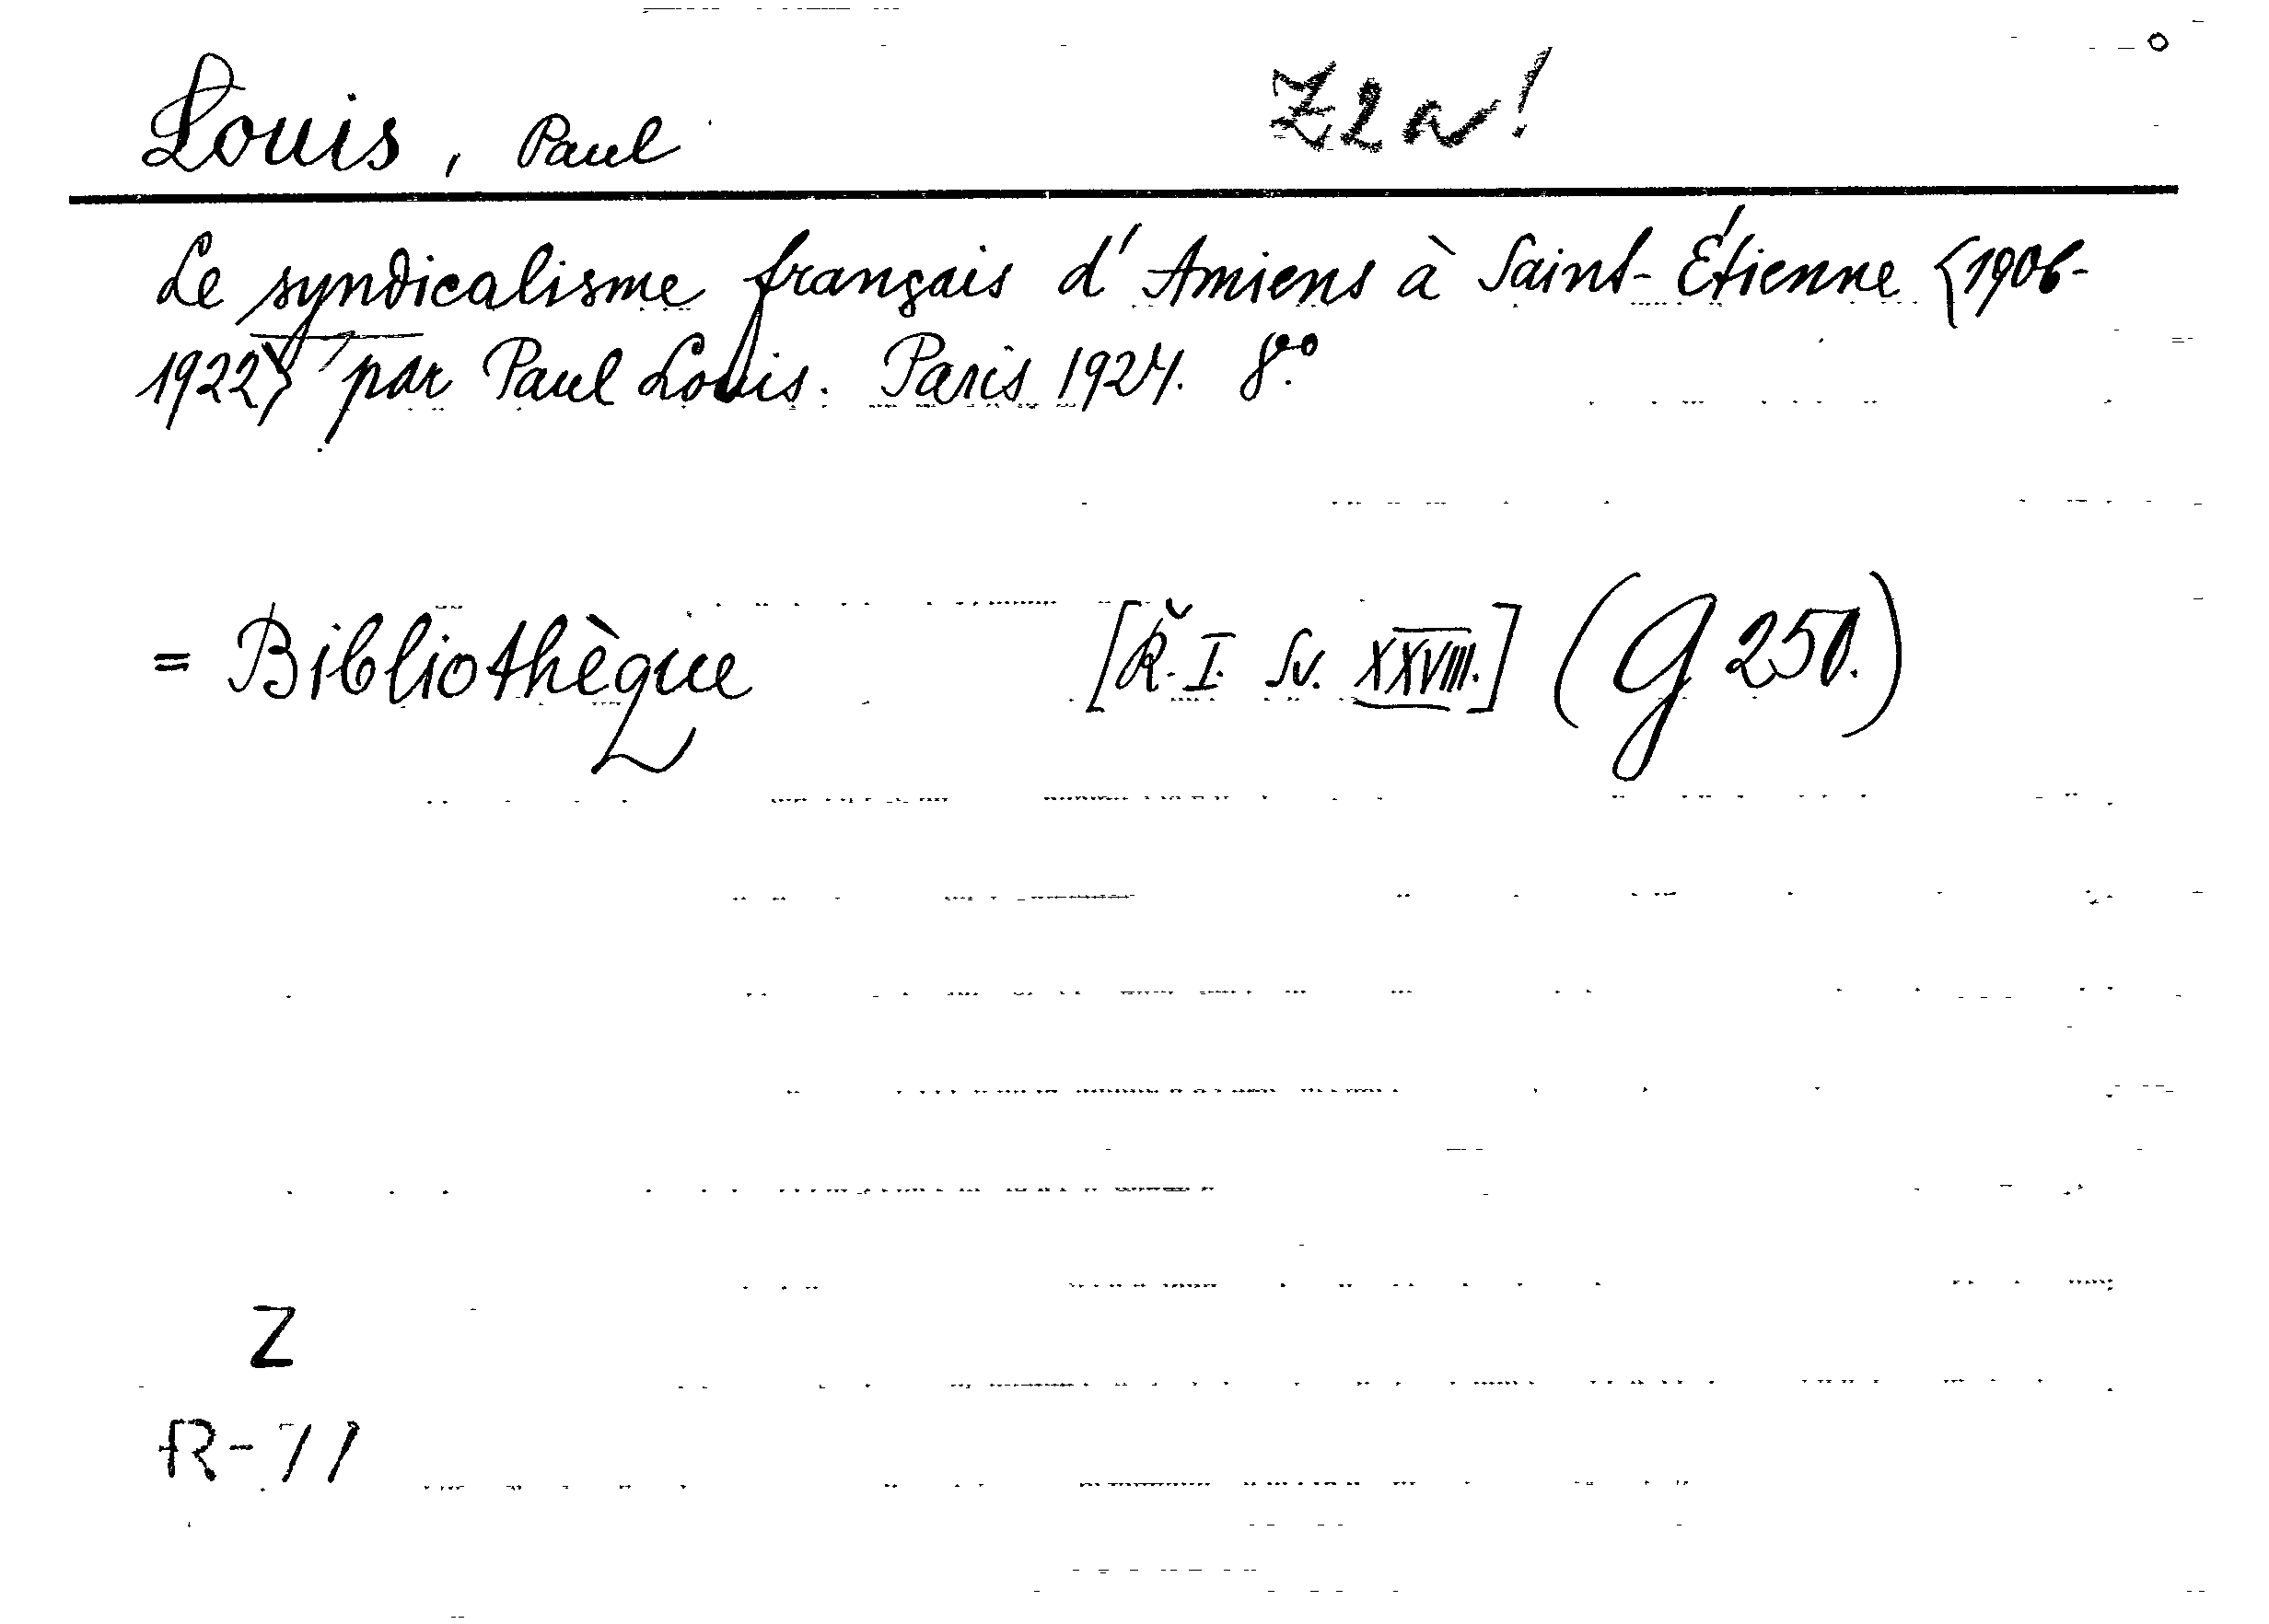 Louis, Paul Z2a!
Le syndicalisme français d'Amiens à Saint-Étienne {1906-
1922} par Paul Louis. Paris 1924. 8.°
= Bibliothèque [Ř. I. Sv. XXVIII.] (G 250.)
Z
R-71